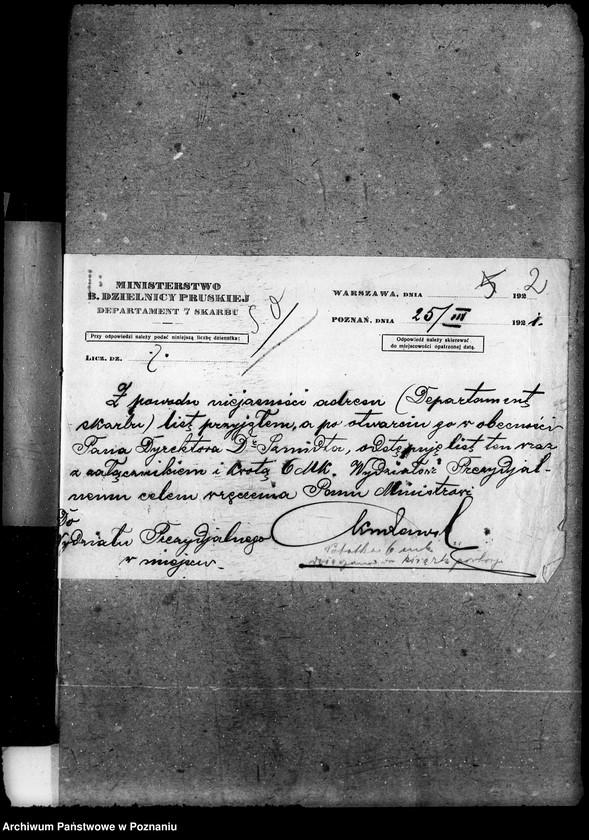 MINISTERSTWO
B. DZIELNICY PRUSKIEJ
DEPARTAMENT 7 SKARBU
Przy odpowiedzi należy podać niniejszą liczbę dziennika:
LICZ. DZ.
WARSZAWA, DNIA 192
2
POZNAŃ, DNIA 25/III 1921.
Odpowiedź należy skierować
do miejscowości opatrzonej datą.
Z powodu niejasności adresu (Departament
skarbu) list przyjąłem, a po otwarciu go w obecności
Pana Dyrektora Dr. odstępuję list ten wraz
z załącznikiem i kwotą 6 Mk. Wydziałowi Prezydjal-
nemu celem wręczenia Panu Ministrowi
Do
Wydziału Prezydjalnego
w miejscu.
6 mk
Archiwum Państwowe w Poznaniu